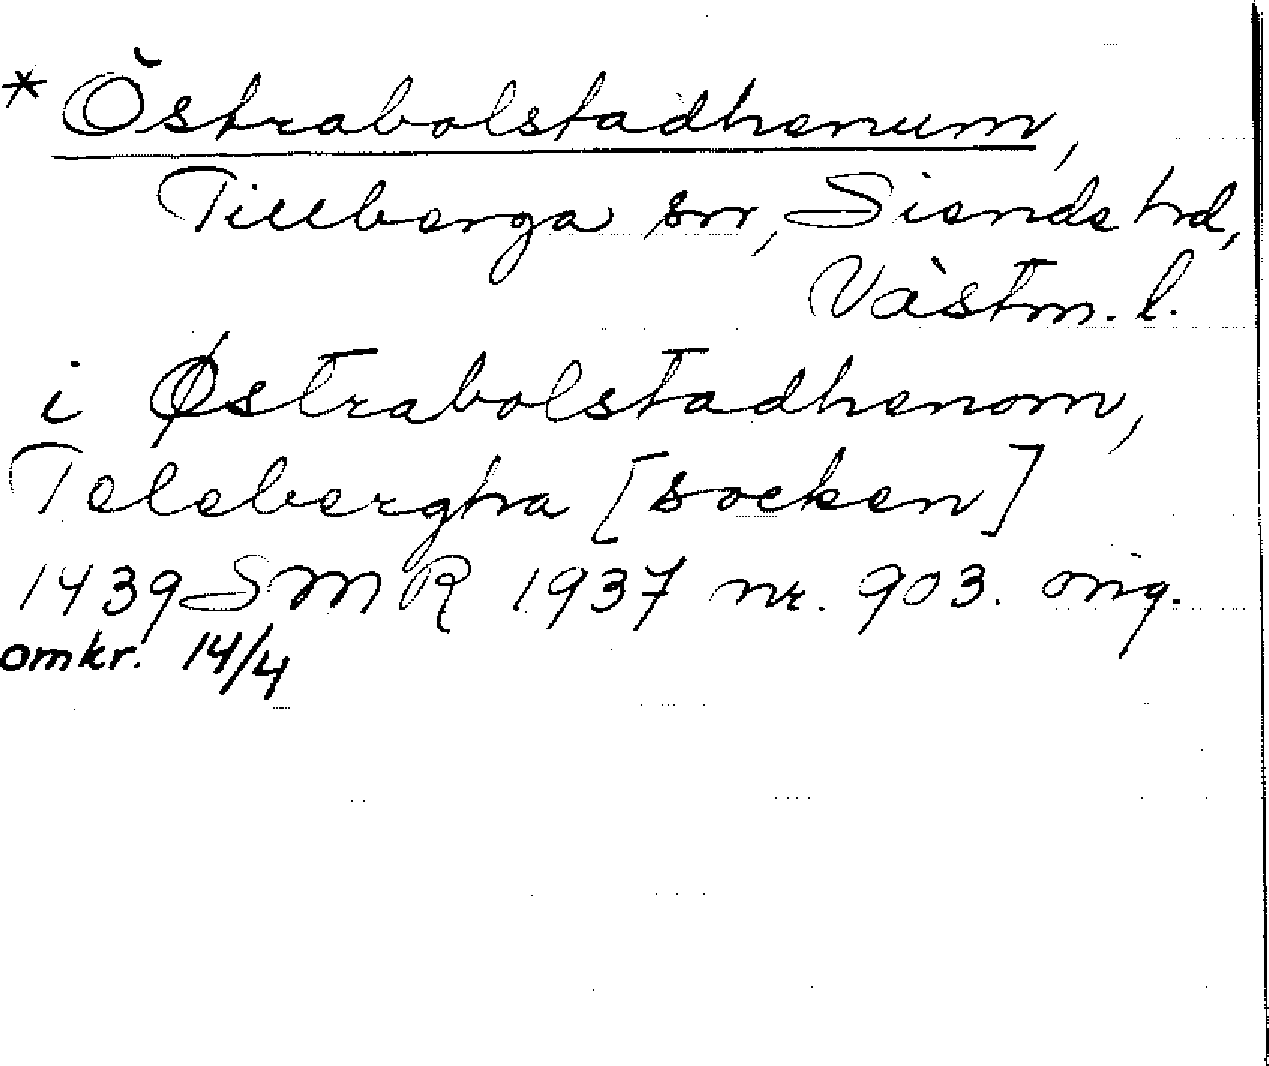 * Östrabolstadhenum,
Tillberga sn, Siende hd,
Västm. l.
i Østrabolstadhenom,
Telebergha [socken]
1439 SMR 1937 nr. 903. orig.
omkr. 14/4